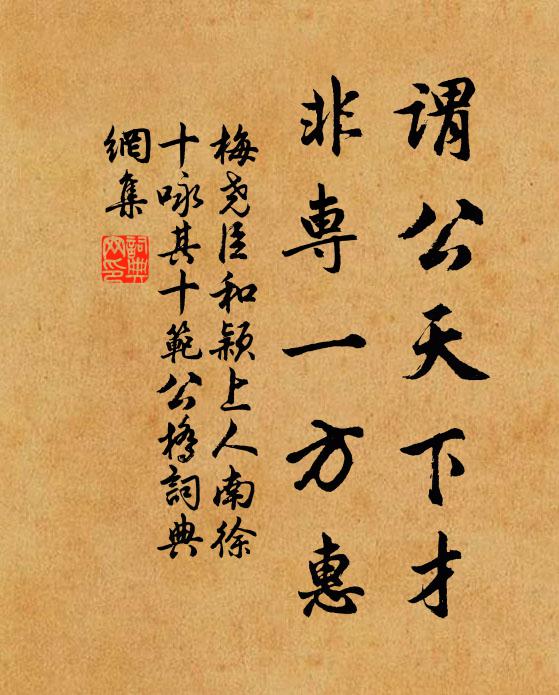 謂公天下才
非専一方惠
梅尧臣和颍上人南徐
十咏其十範公橋詞典
網集
詞典
网印